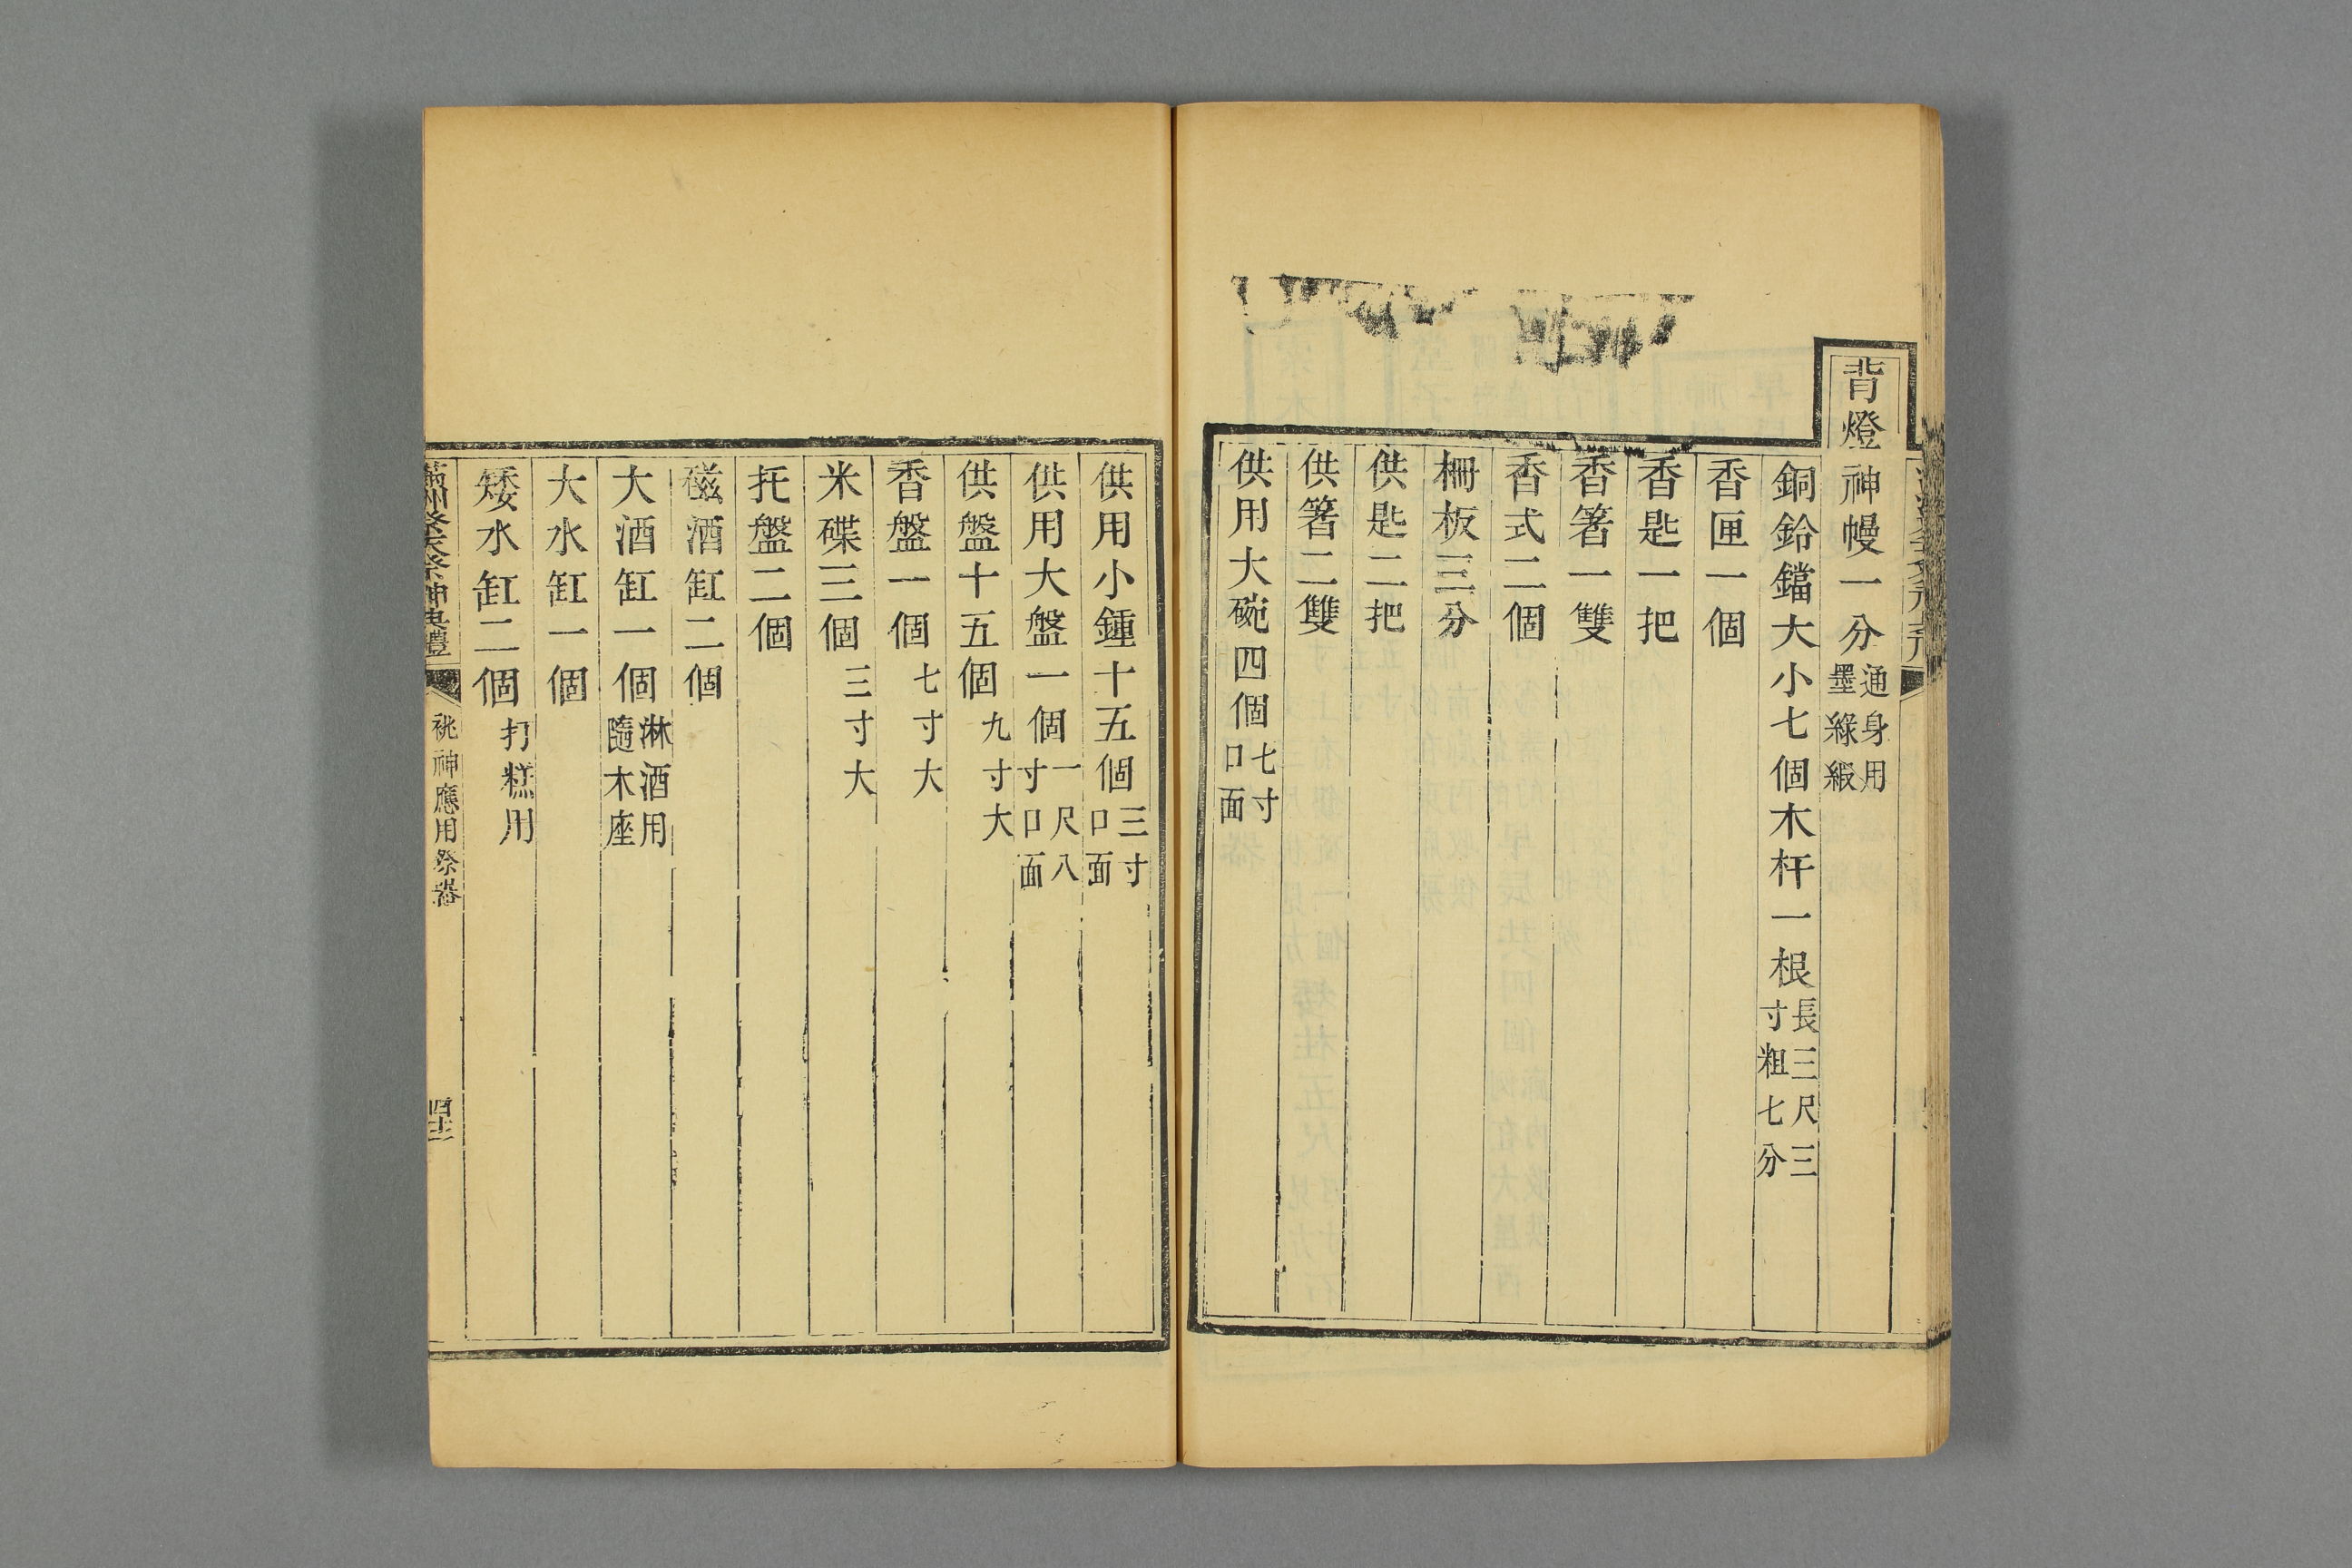 背燈神幔一分通身用墨綠緞
銅鈴鐺大小七個木杆一根長三尺三寸粗七分
香匣一個
香匙一把
香箸一雙
香式二個
柵板三分
供匙二把
供箸二雙
供用大碗四個七寸口面
供用小鍾十五個三寸口面
供用大盤一個一尺八寸口面
供盤十五個九寸大
香盤一個七寸大
米碟三個三寸大
托盤二個
磁酒缸二個
大酒缸一個淋酒用隨木座
大水缸一個
矮水缸二個打糕用
滿洲祭天祭神典禮 祧神應用祭器